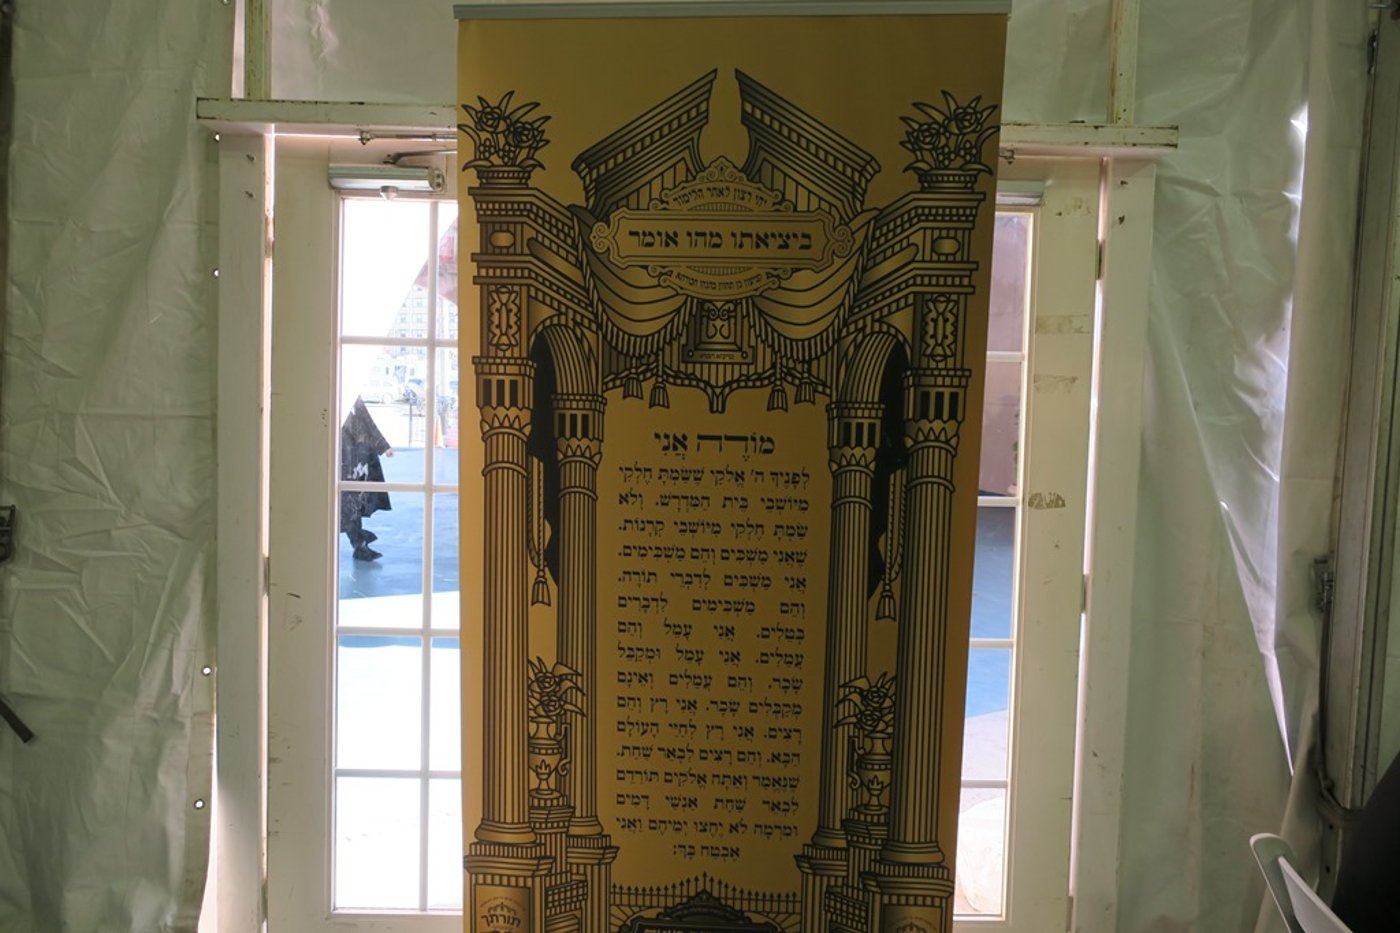 יהי רצון לאחר הלימוד
ביציאתו מהו אומר
מוֹדֶה אֲנִי
לְפָנֶיךָ ה' אֱלֹקַי שֶׁשַּׂמְתָּ חֶלְקִי
מִיּוֹשְׁבֵי בֵּית הַמִּדְרָשׁ. וְלֹא
שַׂמְתָּ חֶלְקִי מִיּוֹשְׁבֵי קְרָנוֹת.
שֶׁאֲנִי מַשְׁכִּים וְהֵם מַשְׁכִּימִים.
אֲנִי מַשְׁכִּים לְדִבְרֵי תּוֹרָה.
וְהֵם מַשְׁכִּימִים לִדְבָרִים
בְּטֵלִים. אֲנִי עָמֵל וְהֵם
עֲמֵלִים. אֲנִי עָמֵל וּמְקַבֵּל
שָׂכָר. וְהֵם עֲמֵלִים וְאֵינָם
מְקַבְּלִים שָׂכָר. אֲנִי רָץ וְהֵם
רָצִים. אֲנִי רָץ לְחַיֵּי הָעוֹלָם
הַבָּא. וְהֵם רָצִים לִבְאֵר שַׁחַת.
שֶׁנֶּאֱמַר וְאַתָּה אֱלֹקִים תּוֹרִדֵם
לִבְאֵר שַׁחַת אַנְשֵׁי דָמִים
וּמִרְמָה לֹא יֶחֱצוּ יְמֵיהֶם וַאֲנִי
אֶבְטַח בָּךְ: